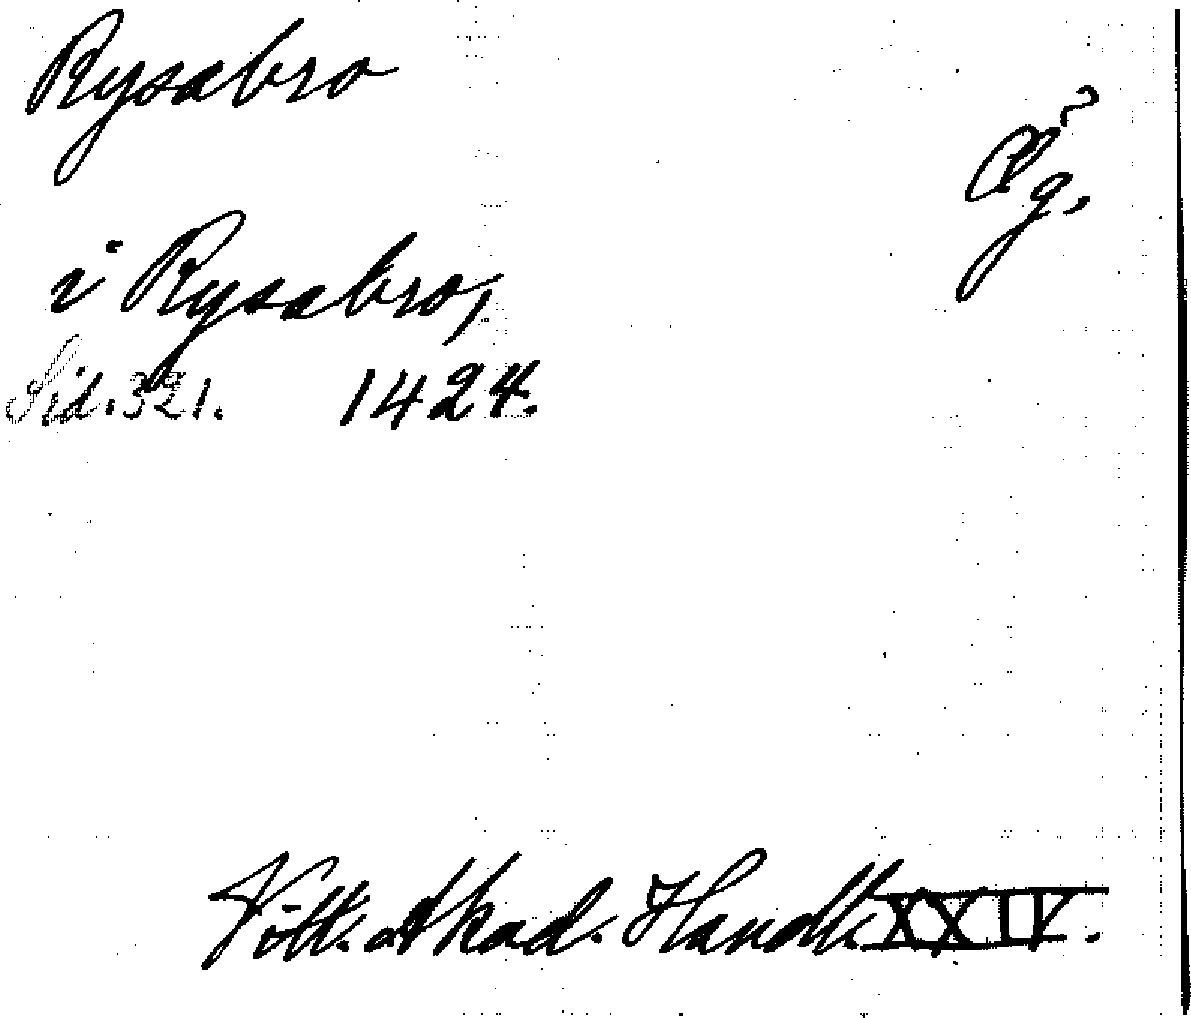 Rysabro
Ög.
i Rysabro,
Sid. 321. 1424.
Vitt. Akad. Handl. XXIV.